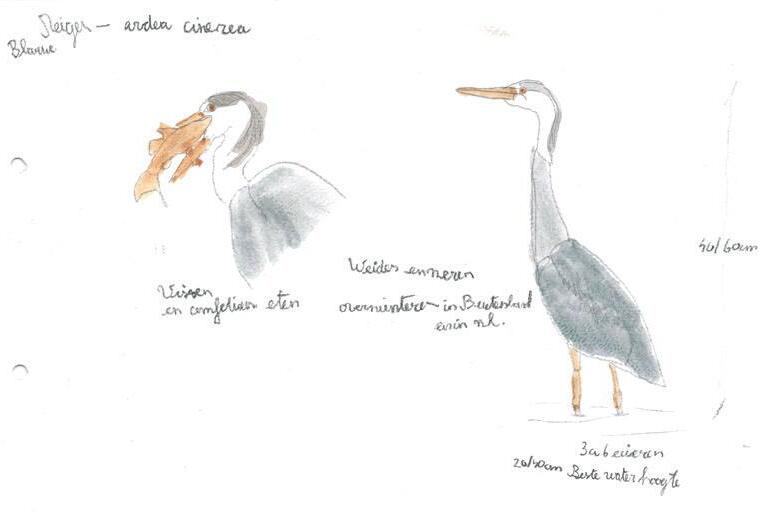 Reiger – ardea cinerea
Blauwe
40/60cm
Weides en meren
Vissen
en amfibiën eten
overwinteren – in Buitenland
en in nl.
3 a 6 eieren
20/40cm Beste water hoogte